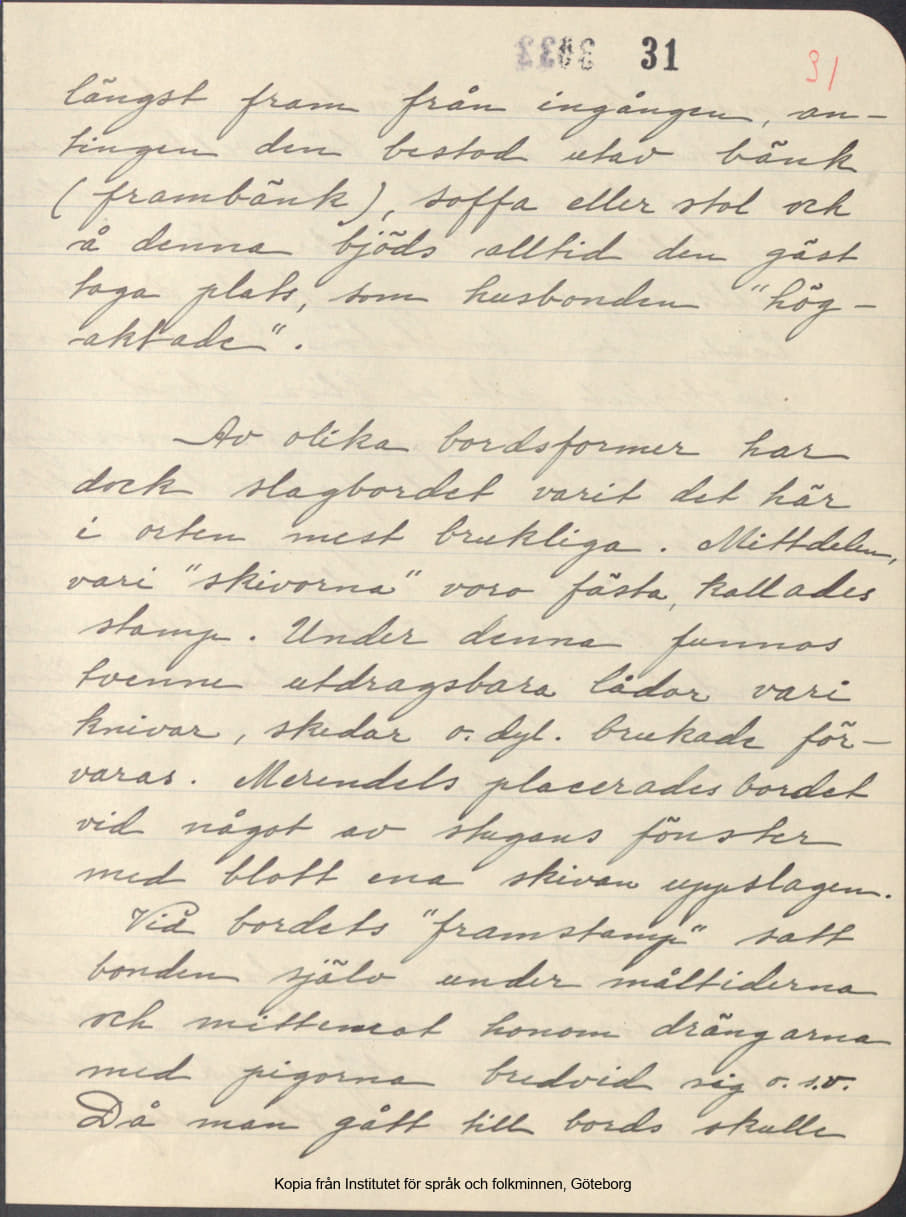 31
31
längst fram från ingången, an-
tingen den bestod utav bänk
(frambänk), soffa eller stol och
å denna bjöds alltid den gäst
taga plats, som husbonden "hög-
aktade".
Av olika bordsformer har
dock slagbordet varit det här
i orten mest brukliga. Mittdelen,
vari "skivorna" voro fästa, kallades
stamp. Under denna funnos
tvenne utdragsbara lådor vari
knivar, skedar o. dyl. brukade för-
varas. Merendels placerades bordet
vid något av stugans fönster
med blott ena skivan uppslagen.
Vid bordets "framstamp" satt
bonden själv under måltiderna
och mittemot honom drängarna
med pigorna bredvid sig o.s.v.
Då man gått till bords skulle
Kopia från Institutet för språk och folkminnen, Göteborg